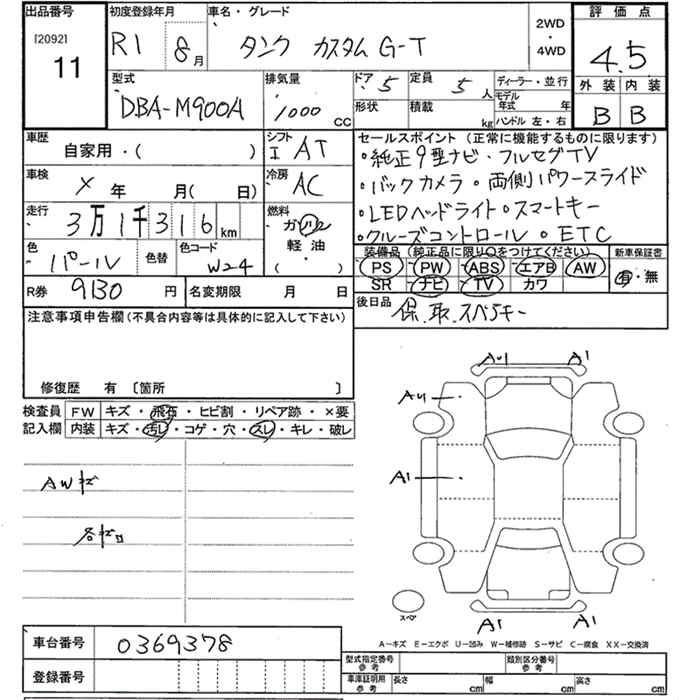 出品番号 初度登録年月 車名・グレード 2WD・4WD 評価点
[2092]
11 R1 8月 タンク カスタム G-T 4.5
外装 内装
B B
型式 排気量 ドア 5 定員 5人 ディーラー・並行
DBA-M900A 1000CC 形状 積載 kg モデル年式 年 ハンドル 左・右
車歴 自家用・( ) シフト I AT セールスポイント(正常に機能するものに限ります)
・純正9型ナビ・フルセグTV
車検 X年 月(日) 冷房 AC ・バックカメラ・両側パワースライド
・LEDヘッドライト・スマートキー
走行 3万1千316km 燃料 ガソリン 軽油 ( )
・クルーズコントロール ・ETC
色 パール 色替 色コード W24
装備品(純正品に限り○をつけてください) 新車保証書
PS PW ABS エアB AW 有・無
SR ナビ TV カワ
R券 9130円 名変期限 月 日
後日品 保、取、スペアキー
注意事項申告欄(不具合内容等は具体的に記入して下さい)
修復歴 有 〔箇所 〕
検査員記入欄 FW キズ・飛石・ヒビ割・リペア跡・×要
内装 キズ・汚レ・コゲ・穴・スレ・キレ・破レ
AWキズ
各キズ凹
AU1 A1
AU1
A1
A1 A1
スペア
A-キズ E-エクボ U-凹み W-補修跡 S-サビ C-腐食 XX-交換済
車台番号 0369378
登録番号
型式指定番号 参考 類別区分番号 参考
車庫証明用 参考 長さ cm 幅 cm 高さ cm